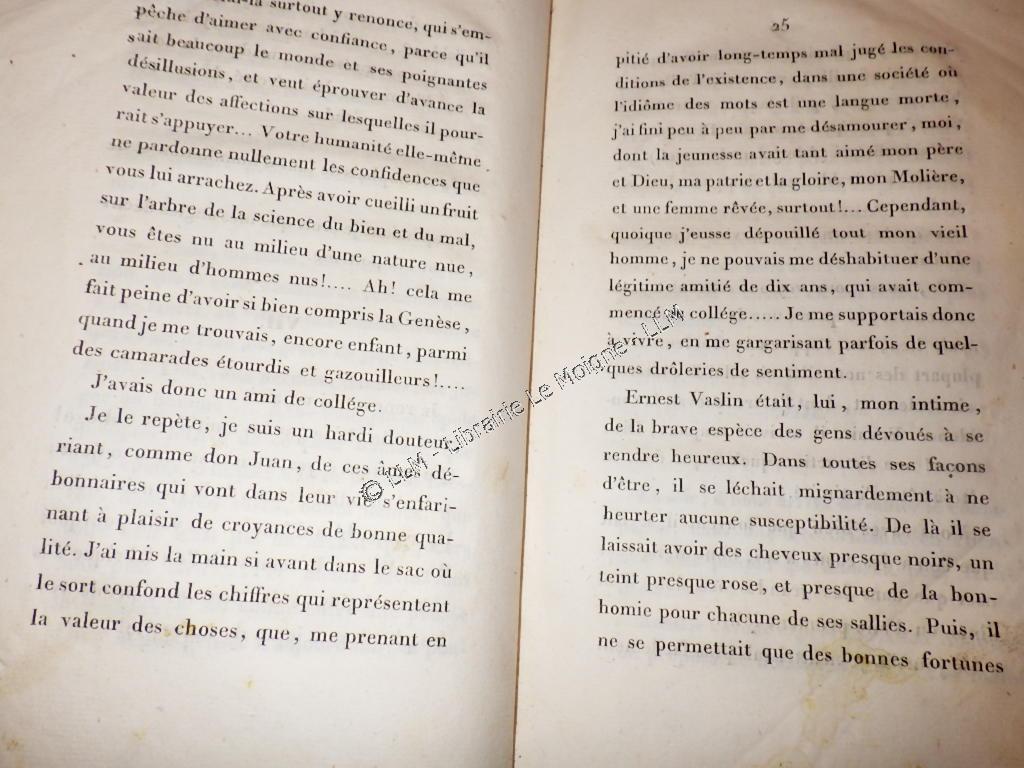 surtout y renonce, qui s'em-
pêche d'aimer avec confiance, parce qu'il
sait beaucoup le monde et ses poignantes
désillusions, et veut éprouver d'avance la
valeur des affections sur lesquelles il pour-
rait s'appuyer... Votre humanité elle-même
ne pardonne nullement les confidences que
vous lui arrachez. Après avoir cueilli un fruit
sur l'arbre de la science du bien et du mal,
vous êtes nu au milieu d'une nature nue,
au milieu d'hommes nus!.... Ah! cela me
fait peine d'avoir si bien compris la Genèse,
quand je me trouvais, encore enfant, parmi
des camarades étourdis et gazouilleurs!....
J'avais donc un ami de collége.
Je le repète, je suis un hardi douteur,
riant, comme don Juan, de ces âmes dé-
bonnaires qui vont dans leur vie s'enfari-
nant à plaisir de croyances de bonne qua-
lité. J'ai mis la main si avant dans le sac où
le sort confond les chiffres qui représentent
la valeur des choses, que, me prenant en
25
pitié d'avoir long-temps mal jugé les con-
ditions de l'existence, dans une société où
l'idiôme des mots est une langue morte,
j'ai fini peu à peu par me désamourer, moi,
dont la jeunesse avait tant aimé mon père
et Dieu, ma patrie et la gloire, mon Molière,
et une femme rêvée, surtout!... Cependant,
quoique j'eusse dépouillé tout mon vieil
homme, je ne pouvais me déshabituer d'une
légitime amitié de dix ans, qui avait com-
mencé au collége..... Je me supportais donc
à vivre, en me gargarisant parfois de quel-
ques drôleries de sentiment.
Ernest Vaslin était, lui, mon intime,
de la brave espèce des gens dévoués à se
rendre heureux. Dans toutes ses façons
d'être, il se léchait mignardement à ne
heurter aucune susceptibilité. De là il se
laissait avoir des cheveux presque noirs, un
teint presque rose, et presque de la bon-
homie pour chacune de ses sallies. Puis, il
ne se permettait que des bonnes fortunes
© LLM - Librairie Le Moigne - LLM